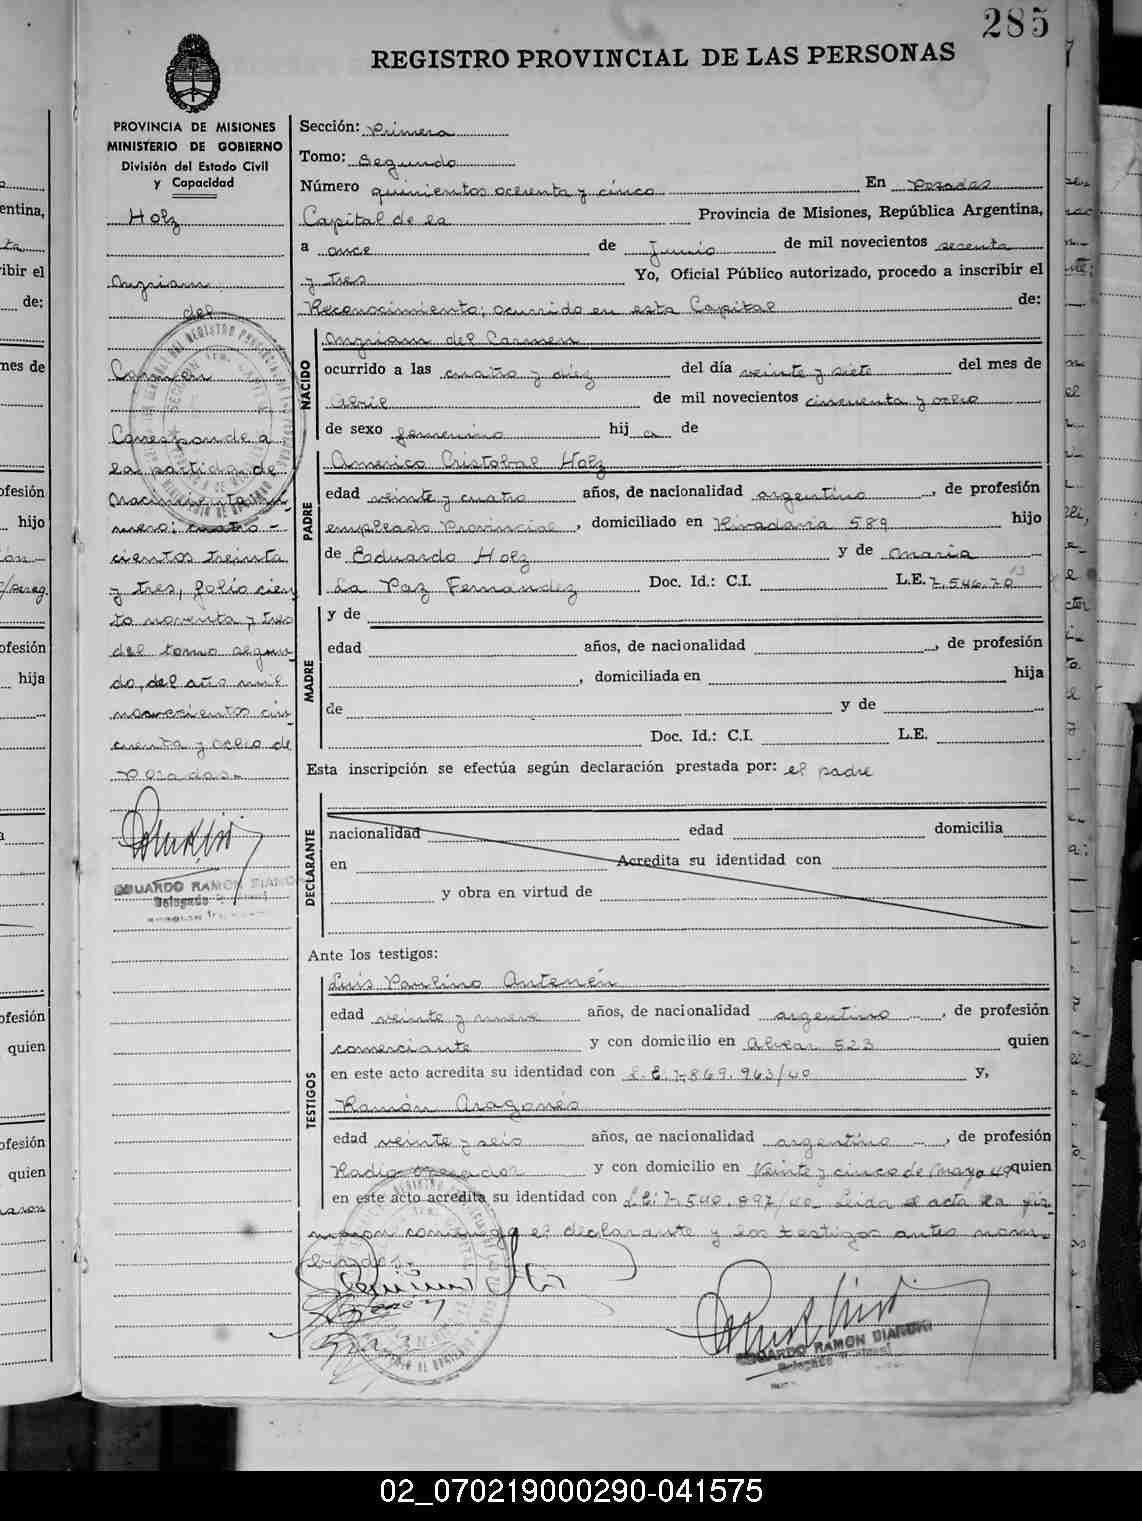 285
REGISTRO PROVINCIAL DE LAS PERSONAS
PROVINCIA DE MISIONES
MINISTERIO DE GOBIERNO
División del Estado Civil
y Capacidad
Holz
Myriam
del
Carmen
Corresponde a
la partida de
Nacimiento nú-
mero: cuatro-
cientos treinta
y tres, folio cien-
to noventa y tres
del tomo segun-
do, del año mil
novecientos cin-
cuenta y ocho de
Posadas.-
EDUARDO RAMON
Delegado
Sección: Primera
Tomo: Segundo
Número quinientos ochenta y cinco En Posadas
Capital de la Provincia de Misiones, República Argentina,
a once de Junio de mil novecientos sesenta
y tres Yo, Oficial Público autorizado, procedo a inscribir el
Reconocimiento; ocurrido en esta Capital de:
NACIDO
Myriam del Carmen
ocurrido a las cuatro y diez del día veinte y siete del mes de
Abril de mil novecientos cincuenta y ocho
de sexo femenino hij a de
PADRE
Americo Cristobal Holz
edad veinte y cuatro años, de nacionalidad argentino, de profesión
empleado Provincial, domiciliado en Rivadavia 589 hijo
de Eduardo Holz y de Maria
La Paz Fernández Doc. Id.: C.I. L.E. 7.546.70
MADRE
y de
edad años, de nacionalidad , de profesión
, domiciliada en hija
de y de
Doc. Id.: C.I. L.E.
Esta inscripción se efectúa según declaración prestada por: el padre
DECLARANTE
nacionalidad edad domicilia
en Acredita su identidad con
y obra en virtud de
Ante los testigos:
TESTIGOS
Luis Paulino Antenén
edad veinte y nueve años, de nacionalidad argentino, de profesión
comerciante y con domicilio en Alvear 523 quien
en este acto acredita su identidad con L.E. 7.869.963/40 y,
Ramón Aragonés
edad veinte y seis años, de nacionalidad argentino, de profesión
Radio Operador y con domicilio en Veinte y cinco de Mayo 49 quien
en este acto acredita su identidad con L.E: 7.540.897/40 Leida el acta la fir-
maron conmigo el declarante y los testigos antes nom-
brados.-
EDUARDO RAMON
Delegado
02_070219000290-041575